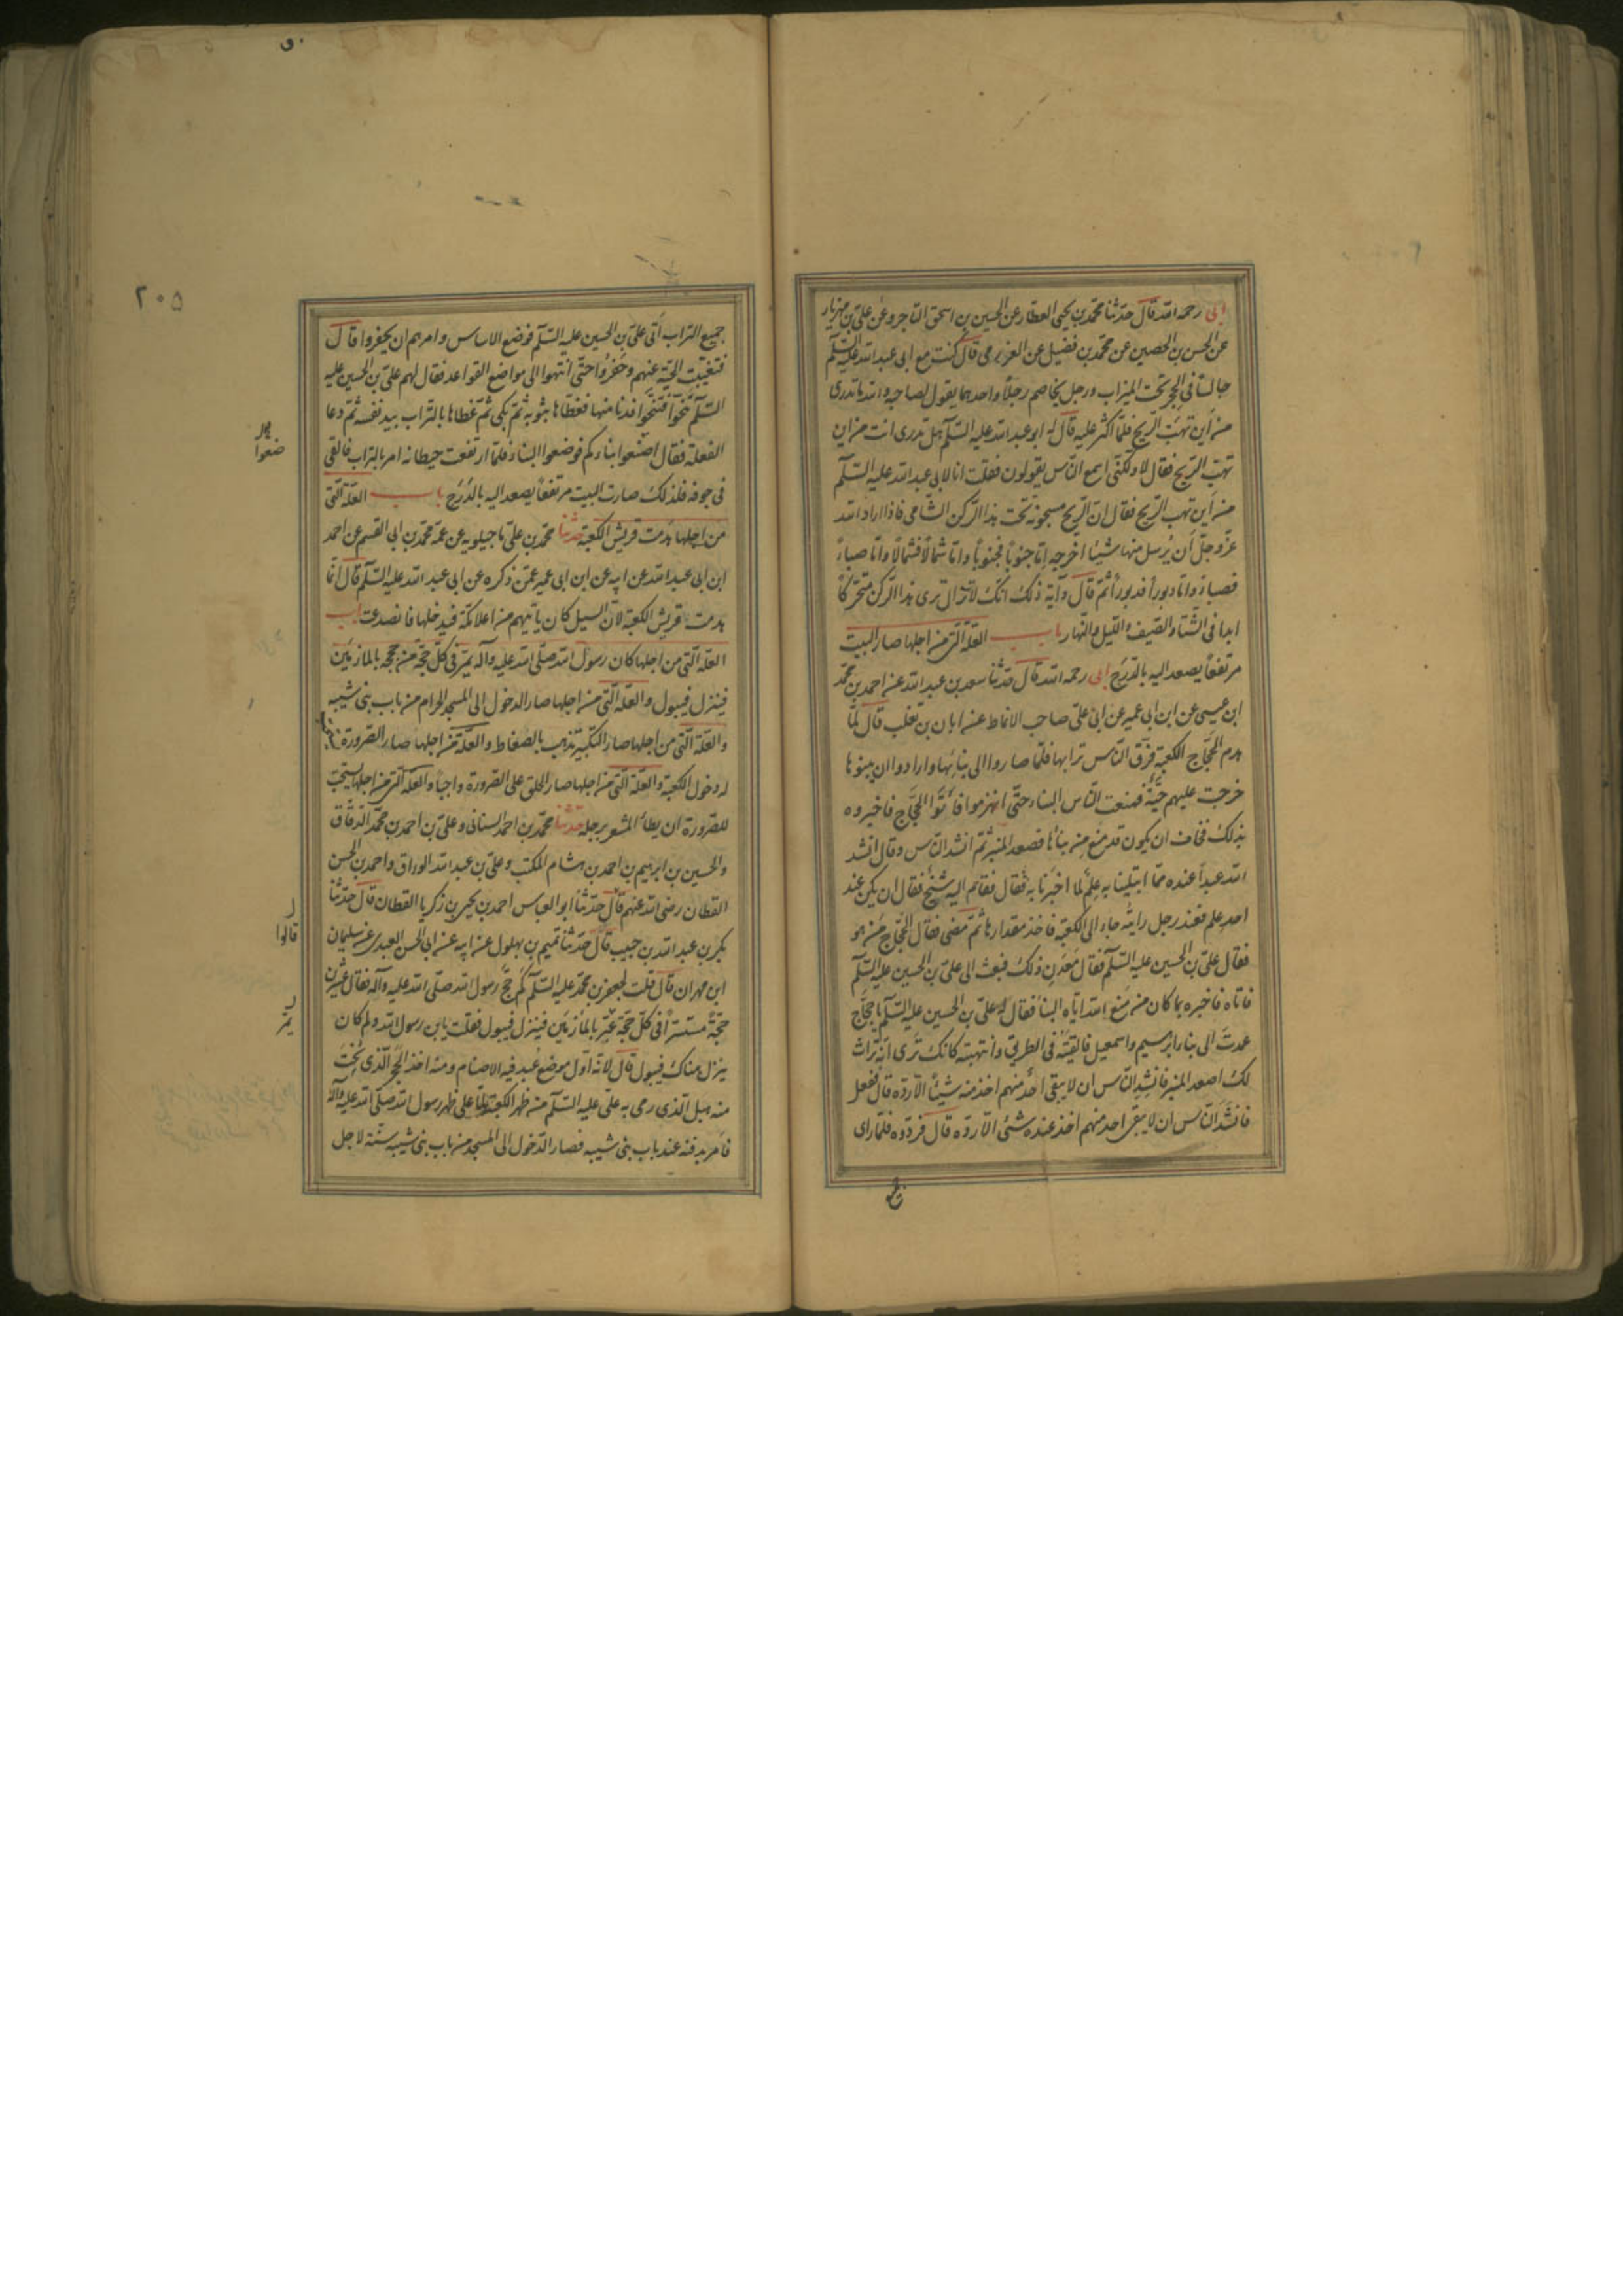 ابى رحمه الله قال حدثنا محمد بن يحيى العطار عن الحسين بن اسحق التاجر وعن على بن مهزيار
عن الحسن بن الحصين عن محمد بن فضيل عن العزرمى قال كنت مع ابى عبد الله عليه السلم
جالسا فى الحجر تحت الميزاب ورجل يخاصم رجلاً واحدهما يقول لصاحبه والله ما تدرى
من أين تهب الريح فلما اكثر عليه قال له ابو عبد الله عليه السلم هل تدرى انت من اين
تهب الريح فقال لا ولكنى اسمع الناس يقولون فقلت انا لابى عبد الله عليه السلم
من أين تهب الريح فقال ان الريح مسجونة تحت هذا الركن الشامى فاذا اراد الله
عز وجل أن يرسل منها شيئا اخرجه إما جنوباً فجنوباً واما شمالاً فشمالاً واما صباءً
فصباءً واما دبوراً فدبوراً ثم قال وآية ذلك انك لا تزال ترى هذا الركن متحركاً
ابدا فى الشتاء والصيف والليل والنهار باب العلة التى من اجلها صار البيت
مرتفعاً يصعد اليه بالدرج ابى رحمه الله قال حدثنا سعد بن عبد الله عن احمد بن محمد
ابن عيسى عن ابن ابى عمير عن ابى على صاحب الانماط عن ابان بن تغلب قال لما
هدم الحجاج الكعبة فرق الناس ترابها فلما صاروا الى بنائها وارادوا ان يبنوها
خرجت عليهم حية فمنعت الناس البناء حتى انهزموا فأتوا الحجاج فاخبروه
بذلك فخاف ان يكون قد منع من بنائها فصعد المنبر ثم انشد الناس وقال انشد
الله عبداً عنده مما ابتلينا به علم لما اخبرنا به فقال فقام اليه شيخ فقال ان يكن عند
احد علم فعند رجل رايته جاء الى الكعبة فاخذ مقدارها ثم مضى فقال الحجاج من هو
فقال على بن الحسين عليه السلم فقال معدن ذلك فبعث الى على بن الحسين عليه السلم
فاتاه فاخبره بما كان من منع الله اياه البناء فقال له على بن الحسين عليه السلم يا حجاج
عمدت الى بناء ابرهيم واسمعيل فالقيته فى الطريق وانتهبته كانك ترى انه تراث
لك اصعد المنبر فانشد الناس ان لا يبقى احد منهم اخذ منه شيئاً الا رده قال ففعل
فانشد الناس ان لا يبقى احد منهم اخذ عنده شئ الا رده قال فردوه فلما راى
جميع
٢٠٥
جميع التراب أتى على بن الحسين عليه السلم فوضع الاساس وامرهم ان يحفروا قال
فتغيبت الحية عنهم وحفروا حتى انتهوا الى مواضع القواعد فقال لهم على بن الحسين عليه
السلم تنحوا فتنحوا فدنا منها فغطاها بثوبه ثم بكى ثم غطاها بالتراب بيد نفسه ثم دعا
الفعلة فقال اصنعوا بناءكم فوضعوا البناء فلما ارتفعت حيطانه امر بالتراب فالقى
ضعوا
فى جوفه فلذلك صارت البيت مرتفعاً يصعد اليه بالدرج باب العلة التى
من اجلها هدمت قريش الكعبة حدثنا محمد بن على ماجيلويه عن عمه محمد بن ابى القسم عن احمد
ابن ابى عبد الله عن ابيه عن ابن ابى عمير عمن ذكره عن ابى عبد الله عليه السلم قال انما
هدمت قريش الكعبة لان السيل كان ياتيهم من اعلا مكة فيدخلها فانصدعت باب
العلة التى من اجلها كان رسول الله صلى الله عليه وآله يمر فى كل حجة من حججه بالمازمين
فينزل فيبول والعلة التى من اجلها صار الدخول الى المسجد الحرام من باب بنى شيبه
والعلة التى من اجلها صار التكبير يذهب بالضغاط والعلة من اجلها صار الصرورة
له دخول الكعبة والعلة التى من اجلها صار الحلق على الصرورة واجباً والعلة التى من اجلها يستحب
للصرورة ان يطأ المشعر برجله حدثنا محمد بن احمد السنانى وعلى بن احمد بن محمد الدقاق
والحسين بن ابرهيم بن احمد بن هشام المكتب وعلى بن عبد الله الوراق واحمد بن الحسن
القطان رضى الله عنهم قال حدثنا ابو العباس احمد بن يحيى بن زكريا القطان قال حدثنا
قالوا
بكر بن عبد الله بن حبيب قال حدثنا تميم بن بهلول عن ابيه عن ابى الحسن العبدى عن سليمان
ابن مهران قال قلت لجعفر بن محمد عليه السلم كم حج رسول الله صلى الله عليه وآله فقال عشرين
حجة مستتراً فى كل حجة يمر بالمازمين فينزل فيبول فقلت يا بن رسول الله ولم كان
يمر
ينزل هناك فيبول قال لانه اول موضع عبد فيه الاصنام ومنه اخذ الحجر الذى نحت
منه هبل الذى رمى به على عليه السلم من ظهر الكعبة لما علا ظهر رسول الله صلى الله عليه وآله
فامر بدفنه عند باب بنى شيبه فصار الدخول الى المسجد من باب بنى شيبه سنة لاجل